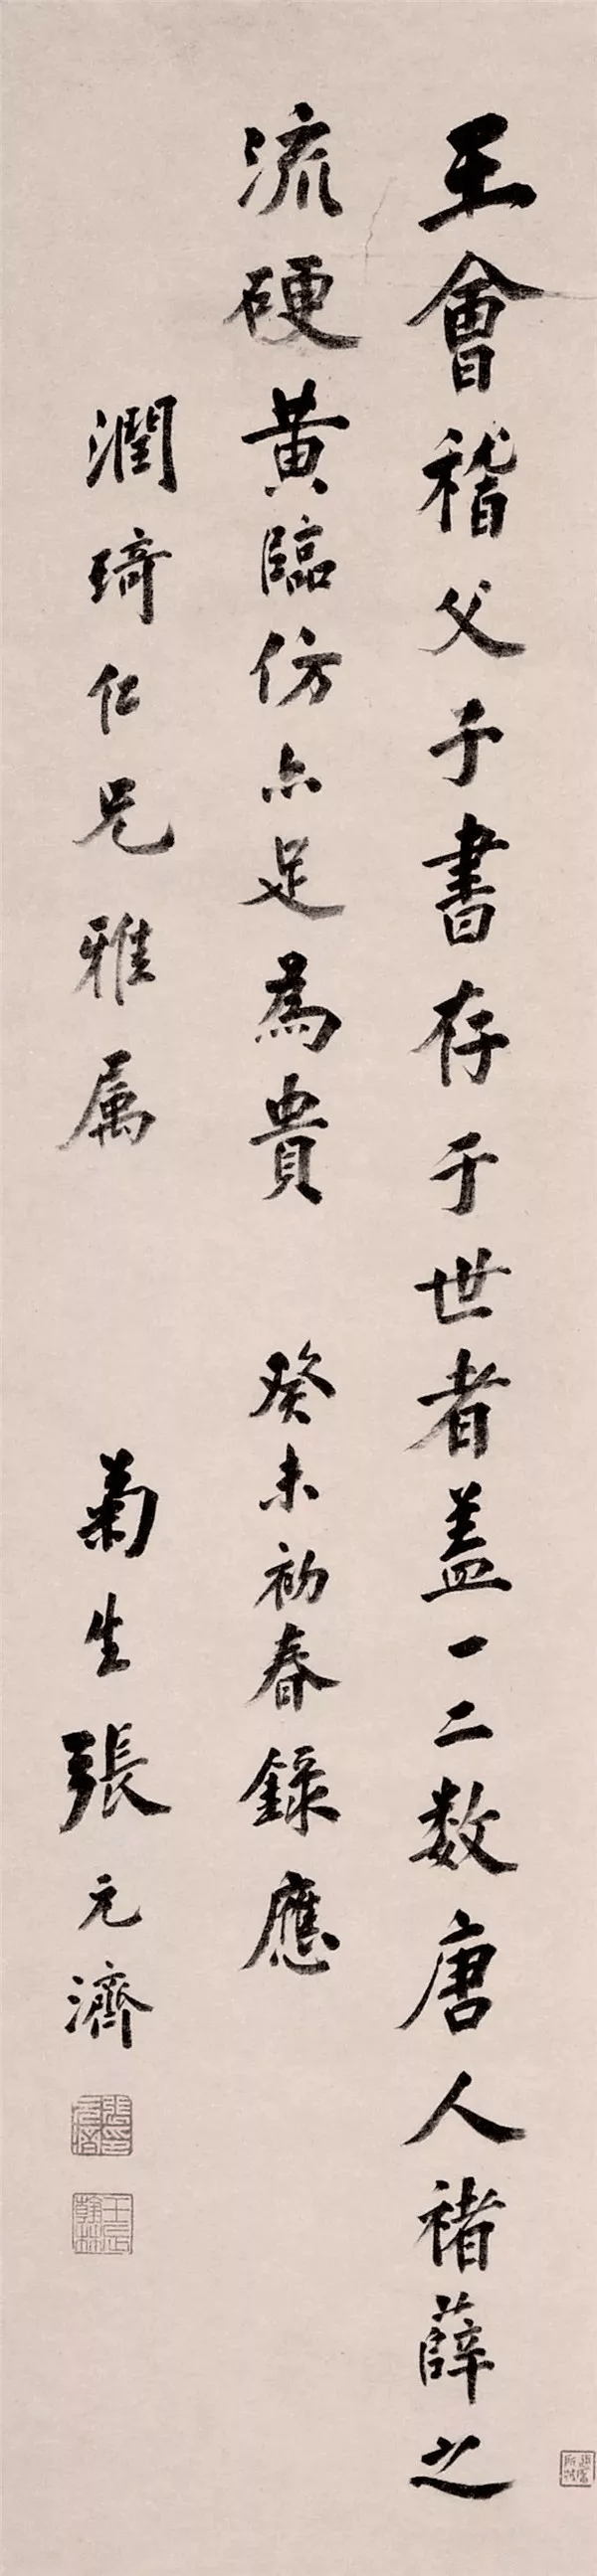 王會稽父子書存于世者蓋一二数唐人褚薛之
流硬黄臨仿亦足為貴 癸未初春錄應
潤琦仁兄雅属 菊生張元濟
張元濟印
壬辰翰林